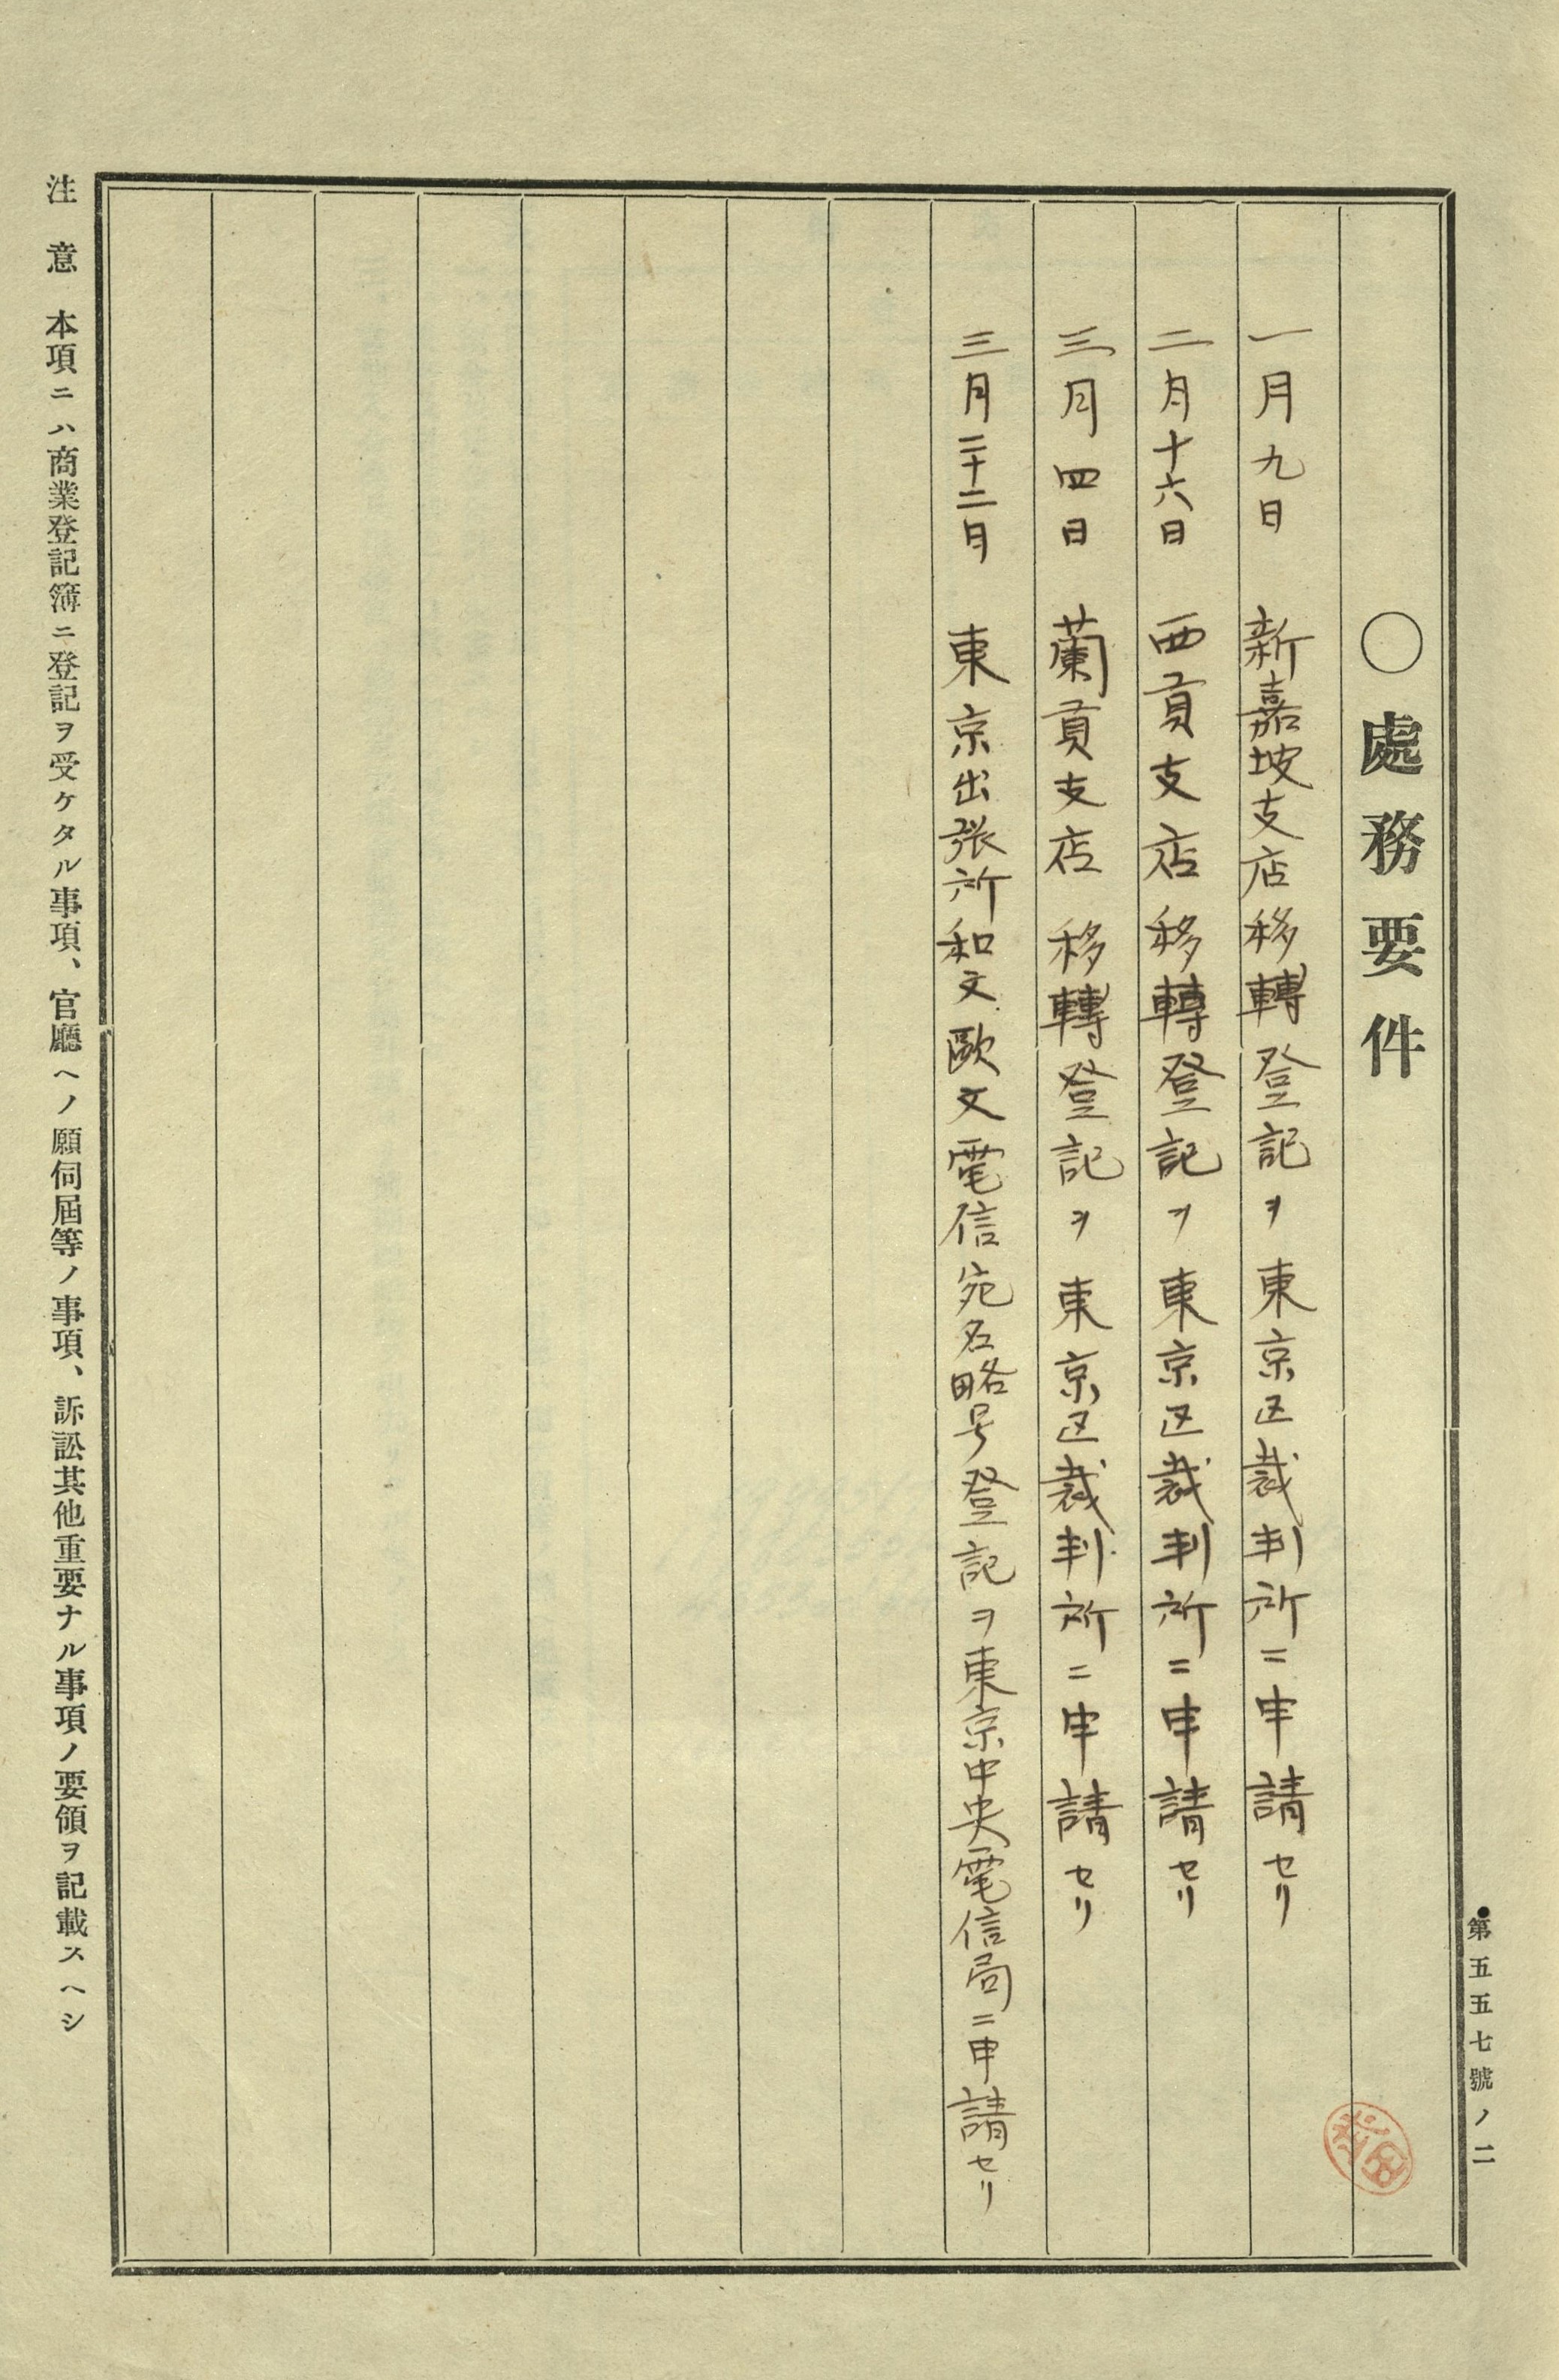 第五五七號ノ二
〇處務要件
一月九日 新嘉坡支店移轉登記ヲ東京区裁判所ニ申請セリ
二月十六日 西貢支店移轉登記ヲ東京区裁判所ニ申請セリ
三月四日 蘭貢支店移轉登記ヲ東京区裁判所ニ申請セリ
三月二十二日 東京出張所和文歐文電信宛名略号登記ヲ東京中央電信局ニ申請セリ
注意 本項ニハ商業登記簿ニ登記ヲ受ケタル事項、官廳ヘノ願伺屆等ノ事項、訴訟其他重要ナル事項ノ要領ヲ記載スヘシ